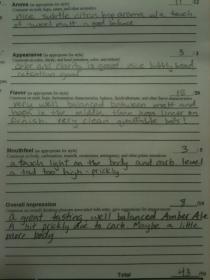 Aroma (as appropriate for style) 11 /12
Comment on malt, hops, esters, and other aromatics
Nice subtle citrus hop aroma w/ a touch
of sweet malt. a good balance
Appearance (as appropriate for style) 3 /3
Comment on color, clarity, and head (retention, color, and texture)
Color and clarity is good. nice bubbly head
retention good
Flavor (as appropriate for style) 18 /20
Comment on malt, hops, fermentation characteristics, balance, finish/aftertaste, and other flavor characteristics
Very well balanced between malt and
hops in the middle then hops linger on
finish. very clean quaffable beer!
Mouthfeel (as appropriate for style) 3 /5
Comment on body, carbonation, warmth, creaminess, astringency, and other palate sensations
a touch light on the body and carb level
a tad too high - prickly
Overall Impression 8 /10
Comment on overall drinking pleasure associated with entry, give suggestions for improvement
a great tasting well balanced Amber Ale
A bit prickly due to carb. Maybe a little
more body
Total 43 /50